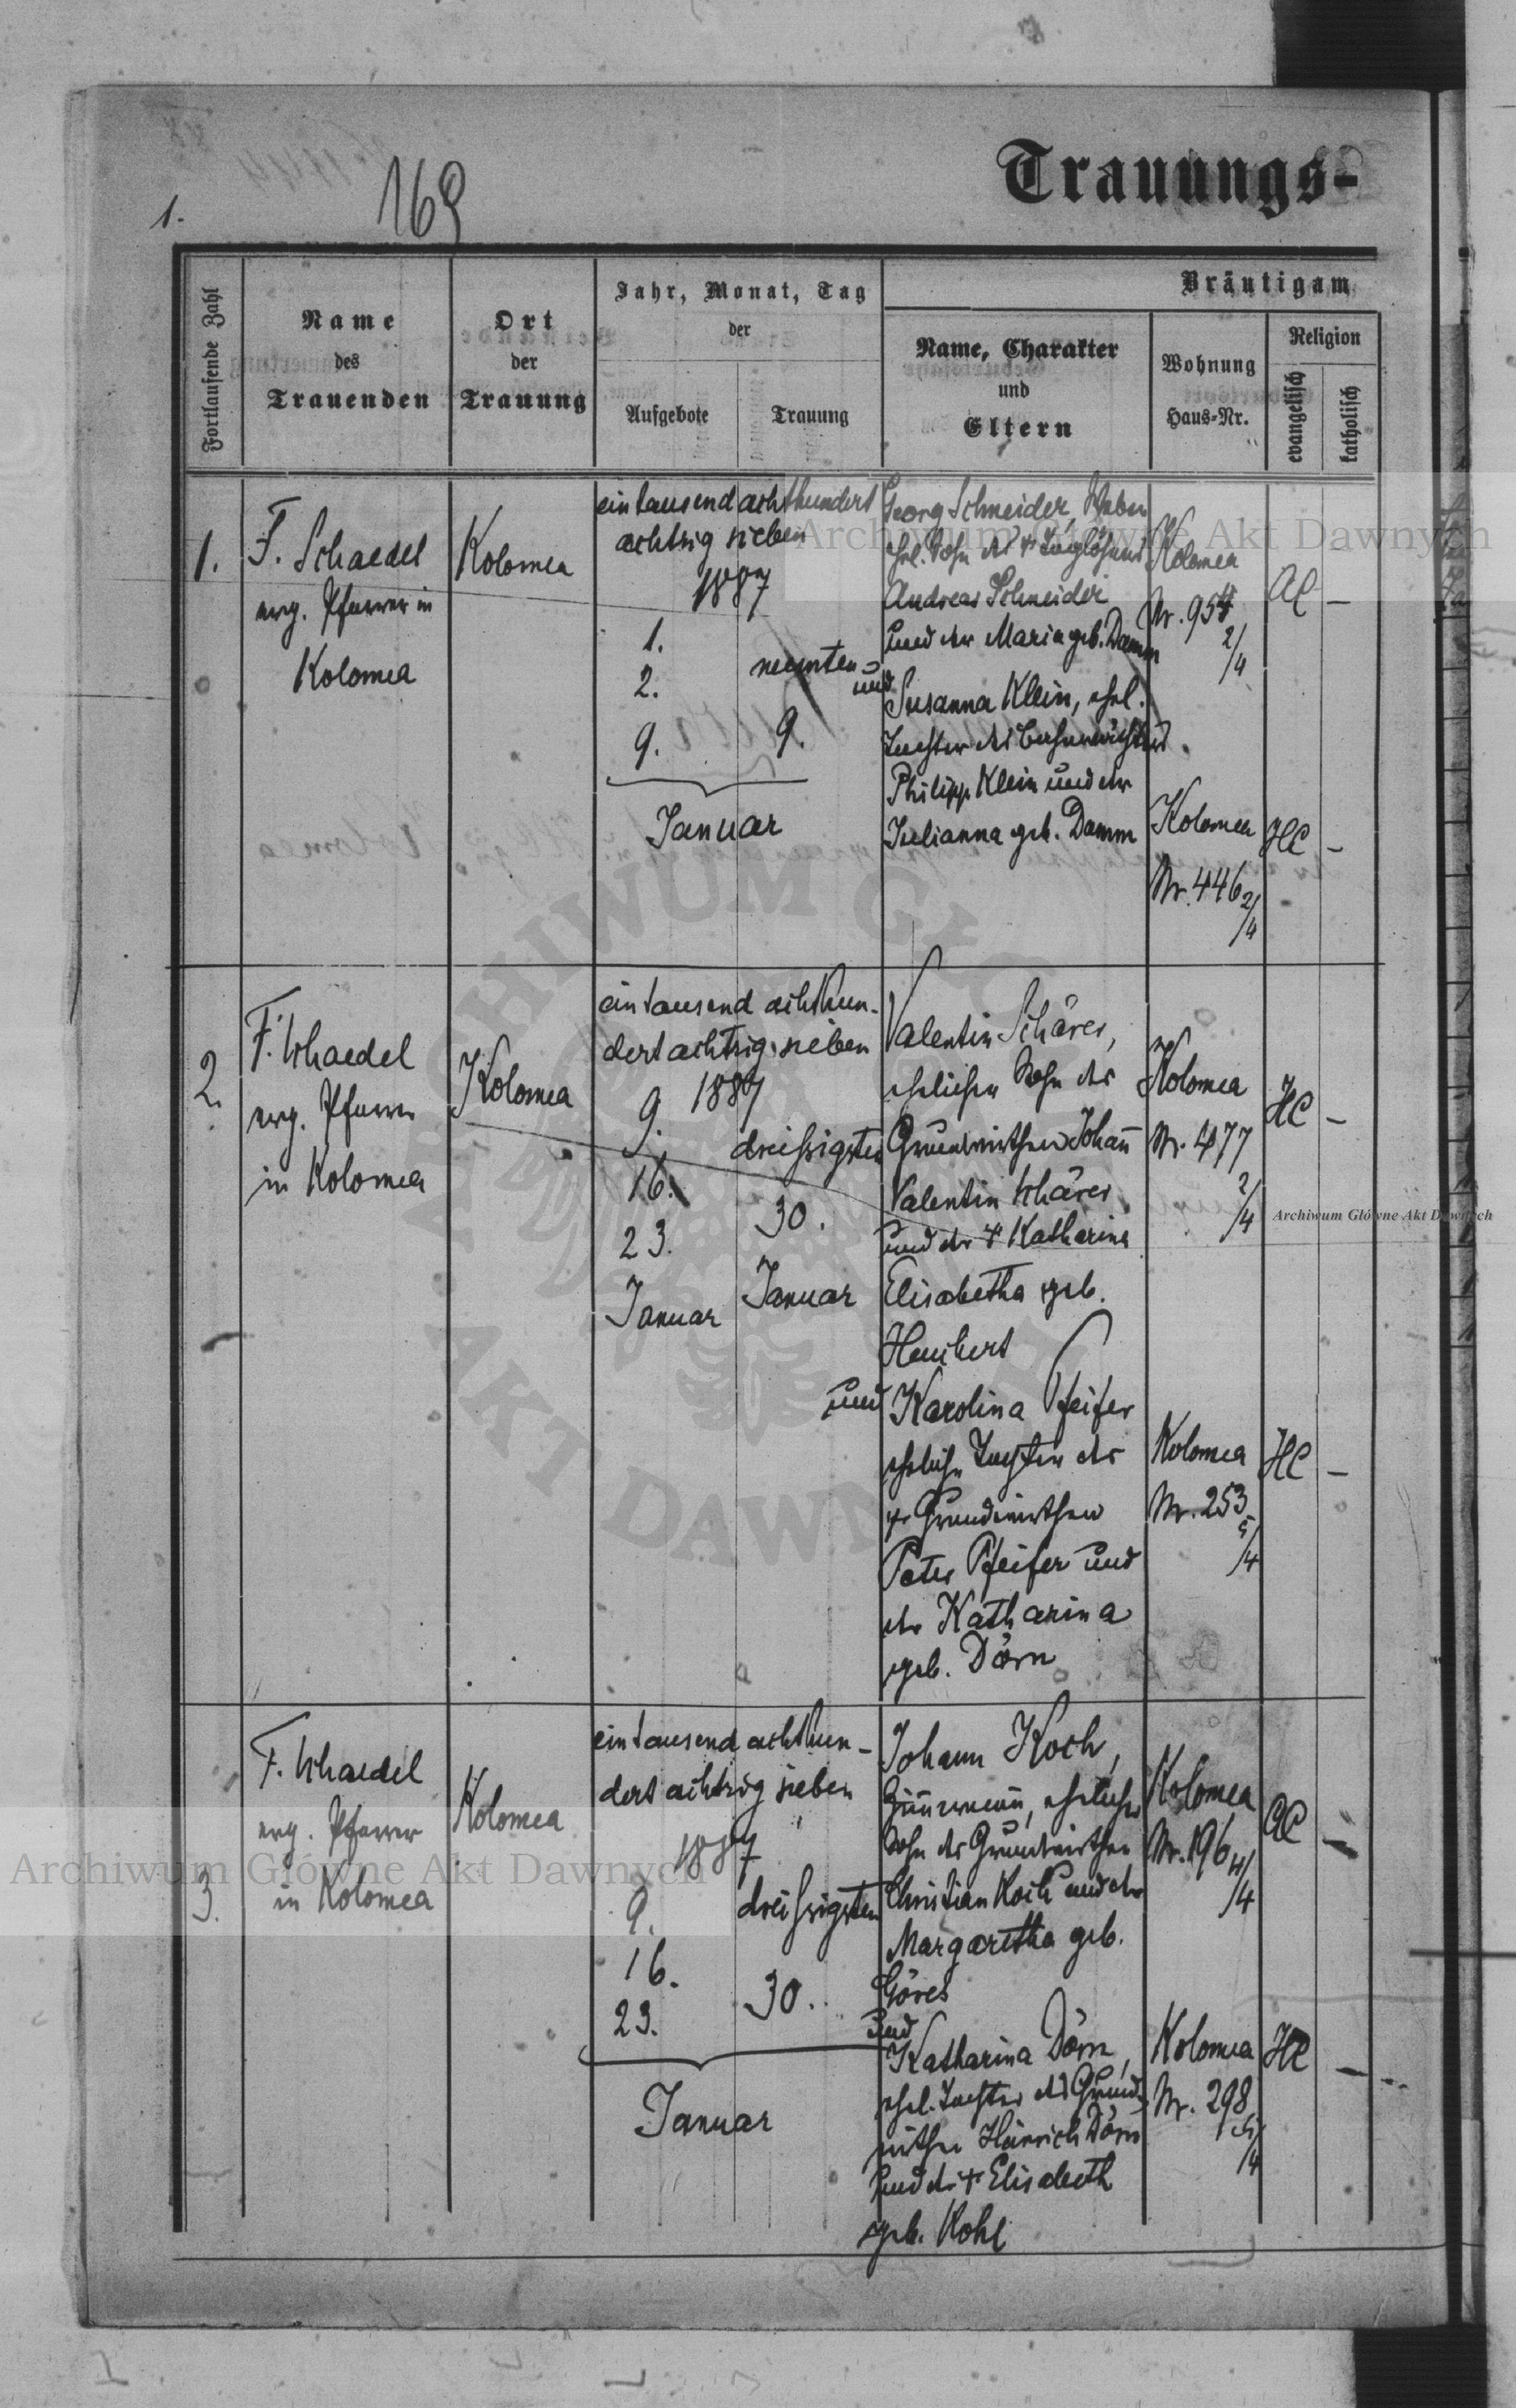 1.
169
Trauungs-
Fortlaufende Zahl
Name
des
Trauenden
Ort
der
Trauung
Jahr, Monat, Tag
der
Aufgebote
Trauung
Bräutigam
Name, Charakter
und
Eltern
Wohnung
Haus-Nr.
Religion
evangelisch
katholisch
1.
F. Schaedel
evg. Pfarrer in
Kolomea
Kolomea
eintausend achthundert
achtzig sieben
1887
1.
2.
9.
neunten
9.
Januar
Georg Schneider, Weber
ehel. Sohn des † Taglöhners
Andreas Schneider
und der Maria geb. Damm
und
Susanna Klein, ehel.
Tochter des Bahnwächters
Philipp Klein und der
Julianna geb. Damm
Kolomea
Nr. 954
2/4
AC –
Kolomea
Nr. 446 2/4
HC –
2.
F. Schaedel
evg. Pfarrer
in Kolomea
Kolomea
eintausend achthun-
dert achtzig sieben
1887
9.
16.
23.
Januar
dreissigsten
30.
Januar
Valentin Schärer,
ehelicher Sohn des
Grundwirthen Johann
Valentin Schärer
und der † Katharina
Elisabetha geb.
und
Karolina Pfeifer
eheliche Tochter des
† Grundwirthen
Peter Pfeifer und
der Katharina
geb. Dörn
Kolomea
Nr. 477
2/4
HC –
Kolomea
Nr. 253
/4
HC –
3.
F. Schaedel
evg. Pfarrer
in Kolomea
Kolomea
eintausend achthun-
dert achtzig sieben
1887
9.
16.
23.
dreissigsten
30.
Januar
Johann Koch,
Zimmermann, ehelicher
Sohn des Grundwirthen
Christian Koch und der
Margaretha geb.
Göres
und
Katharina Dörn,
ehel. Tochter des Grund-
wirthen Heinrich Dörn
und der † Elisabeth
geb. Kohl
Kolomea
Nr. 196
/4
AC –
Kolomea
Nr. 298
/4
HC –
Archiwum Główne Akt Dawnych
Archiwum Główne Akt Dawnych
Archiwum Główne Akt Dawnych